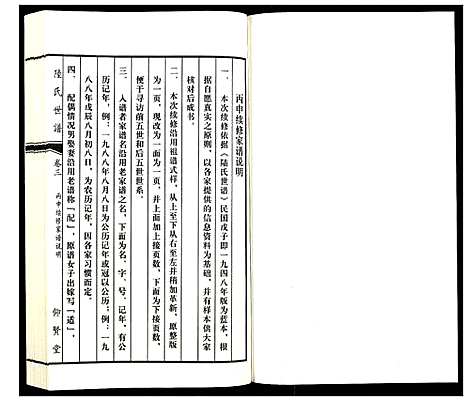 丙申续修家谱说明
一、本次续修依据《陆氏世谱》民国戊子即一九四八年版为蓝本，根
据自愿真实之原则，以各家提供的信息资料为基础，并有样本供大家
核对后成书。
二、本次续修沿用祖谱式样，从上至下从右至左并稍加革新，原整版
为一页，现改为一面为一页，并上面加上接页数，下面为下接页数，
便于寻访前五世和后五世世系。
三、入谱者家谱名沿用老家谱之名，下面为名、字、号，记年，有公
历记年，例：一九八八年八月八日为公历记年或冠以公历；例：一九
八八年戊辰八月初八日，为农历记年，因各家习惯而定。
四、配偶情况男娶妻沿用老谱称“配”，原谱女子出嫁写“适”，
陆氏世谱 卷三 丙申续修家谱说明 仰贤堂